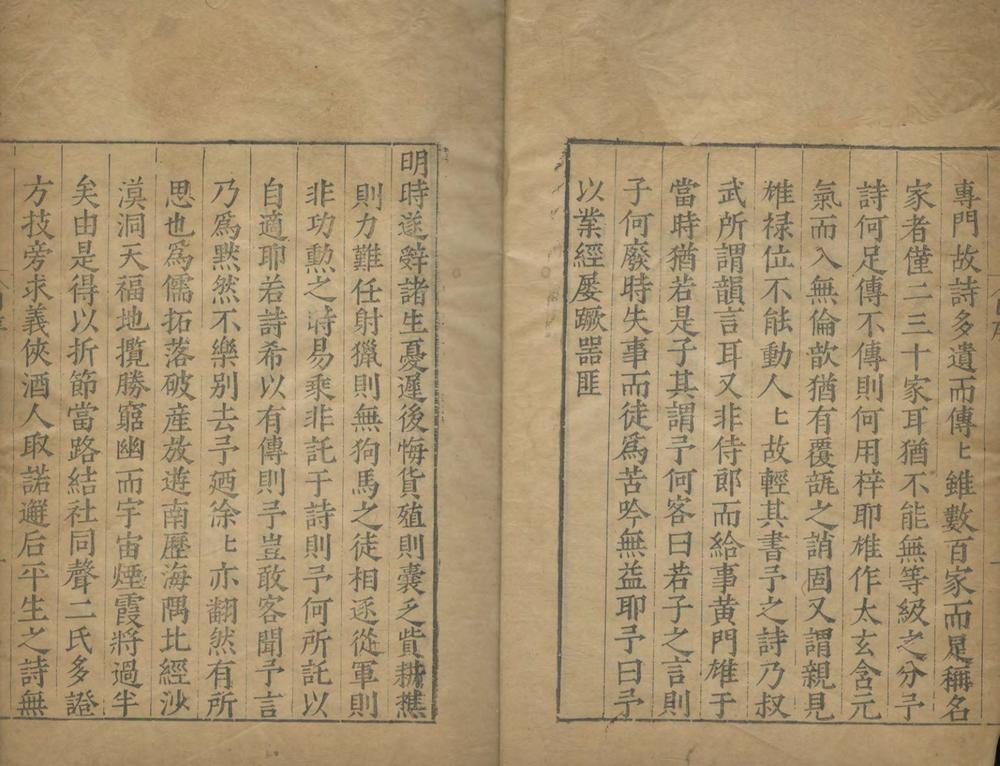 專門故詩多遺而傳〻雖數百家而足稱名
家者僅二三十家耳猶不能無等級之分予
詩何足傳不傳則何用梓耶雄作太玄含元
氣而入無倫歆猶有覆瓿之誚固又謂親見
雄祿位不能動人〻故輕其書予之詩乃叔
武所謂韻言耳又非侍郎而給事黃門雄于
當時猶若是子其謂予何客曰若子之言則
子何廢時失事而徒爲苦吟無益耶予曰予
以業經屡蹶器匪
明時遂辤諸生憂遲後悔貨殖則囊乏貲耕樵
則力難任射獵則無狗馬之徒相逐從軍則
非功勲之時易乘非託于詩則予何所託以
自適耶若詩希以有傳則予豈敢客聞予言
乃爲默然不樂別去予廼徐〻亦翻然有所
思也爲儒拓落破産放遊南歷海隅北經沙
漠洞天福地攬勝窮幽而宇宙煙霞將過半
矣由是得以折節當路結社同聲二氏多證
方技旁求義俠酒人取諾邂后平生之詩無